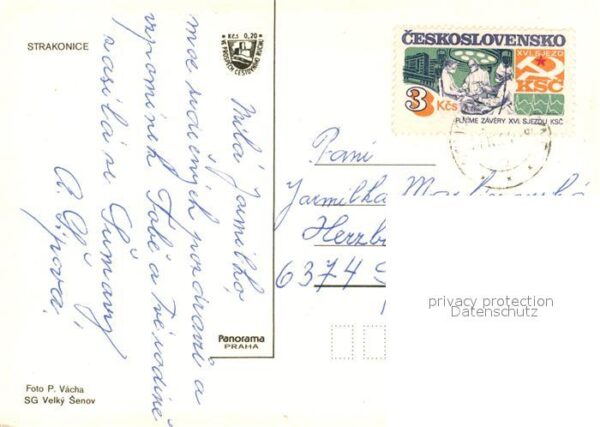 STRAKONICE
Kčs 0,20
VE PROSPĚCH CESTOVNÍHO RUCHU
Milá Jarmilko
moc srdečných pozdravů a
vzpomínek Tobě a Tvé rodině
zasílá ze Šumavy
A. Šípová
Panorama
PRAHA
Foto P. Vácha
SG Velký Šenov
ČESKOSLOVENSKO
XVI. SJEZD
KSČ
3 Kčs
PLNÍME ZÁVĚRY XVI. SJEZDU KSČ
Paní
Jarmilka
Herzb
6374 S
privacy protection
Datenschutz